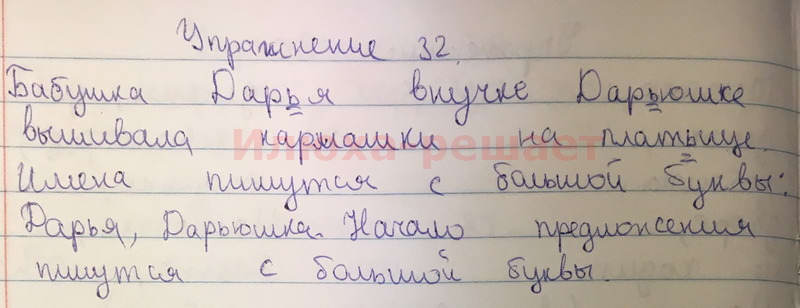 Упражнение 32.
Бабушка Дарья внучке Дарьюшке
вышивала кармашки на платьице.
Илюха-решает
Имена пишутся с большой буквы:
Дарья, Дарьюшка. Начало предложения
пишутся с большой буквы.